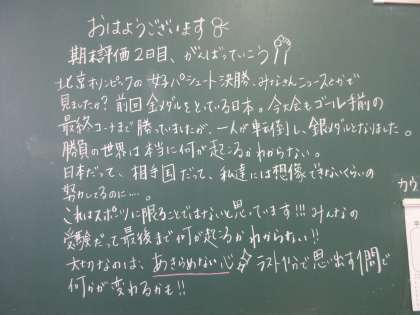 おはようございます
期末評価2日目、がんばっていこう
北京オリンピックの女子パシュート決勝、みなさんニュースとかで
見ましたか?前回金メダルをとっている日本。今大会もゴール手前の
最終コーナーまで勝っていましたが、一人が転倒し、銀メダルとなりました。
勝負の世界は本当に何が起こるかわからない。
日本だって、相手国だって、私達には想像できないくらいの
努力してるのに…。
これはスポーツに限ることではないと思っています!!!みんなの
受験だって最後まで何が起こるかわからない!!
大切なのは、あきらめない心 ラスト1分で思い出す1問で
何かが変わるかも!!